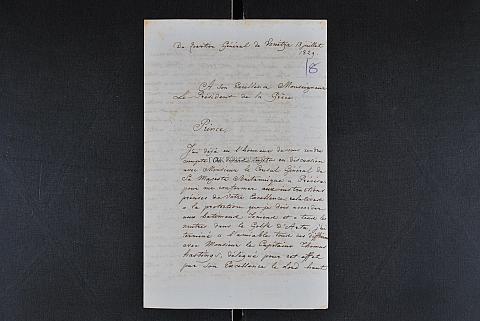 Du Quartier Général de Vonitza 19 juillet
1829.
18
A Son Excellence Monseigneur
Le Président de la Grèce.
Prince,
J'ai déjà eu l'honneur de vous rendre
compte en discussion
avec Monsieur le Consul Général de
Sa Majesté Britannique à Prevesa
pour me conformer aux instructions
précises de Votre Excellence relatives
à la protection que je dois accorder
aux bâtiments Ioniens et à tous les
autres dans le Golfe d'Arta, j'ai
terminé à l'amiable tous ces différens
avec Monsieur le Capitaine Thomas
Hastings, délégué pour cet effet
par Son Excellence le Lord haut